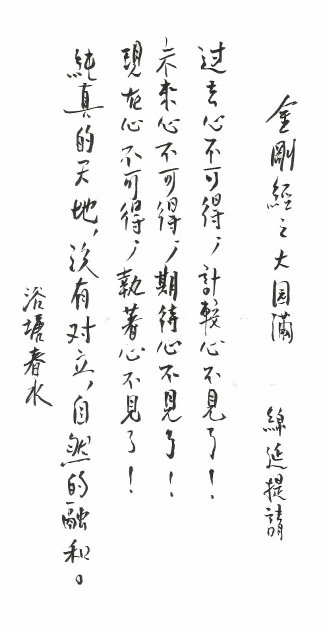 金剛經之大园滿 綿延提請
过去心不可得，計較心不見了！
未來心不可得，期待心不見了！
現在心不可得，執著心不見了！
純真的天地，没有对立，自然的融和。
浴塘春水